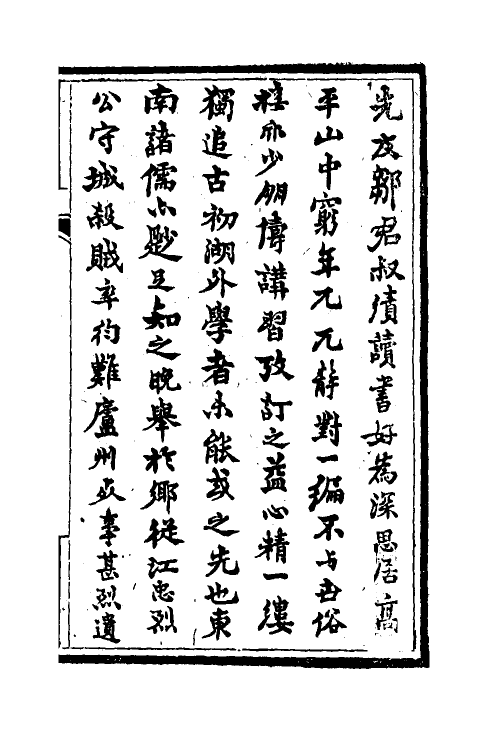 先友鄒君叔績讀書好為深思居高
平山中窮年兀兀靜對一編不与世俗
接亦少朋儔講習攷訂之益心精一縷
獨追古初湖外學者未能或之先也東
南諸儒亦尠足知之晚舉於鄉從江忠烈
公守城殺賊卒徇難廬州死事甚烈遺